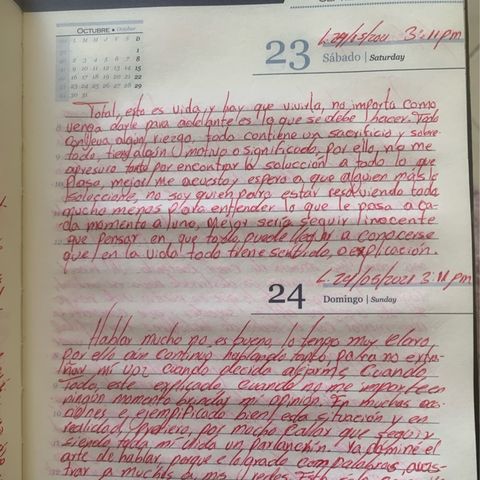 OCTUBRE • October
L M M J V S D
1
2 3 4 5 6 7 8
9 10 11 12 13 14 15
16 17 18 19 20 21 22
23 24 25 26 27 28 29
30 31
23 Sábado | Saturday
L 24/05/2021 3:11pm
Total, esto es vida y hay que vivirla, no importa como
venga darle para adelante es lo que se debe hacer. Todo
conlleva algún riesgo, todo contiene un sacrificio y sobre
todo, tiene algún motivo o significado, por ello, no me
apresuro tanto por encontrar la solucción a todo lo que
pasa, mejor me acuesto y espero a que alguien más lo
soluccione, no soy quien para estar resolviendo todo
mucho menos para entender lo que le pasa a ca-
da momento a uno. Mejor sería seguir inocente
que pensar en que todo puede llegar a conocerse
que en la vida todo tiene sentido, o explicación.
L 24/05/2021 3:11 pm
24 Domingo | Sunday
Hablar mucho no es bueno, lo tengo muy claro,
por ello aún continuo hablando tanto, para no extra-
ñar mi voz cuando decida alejarme. Cuando
Todo, este explicado, cuando no me importe en
ningún momento brindar mi opinión. En muchas oca-
ciones e ejemplificado bien esta situación y en
realidad prefiero, por mucho callar que seguir
siendo toda mi vida un parlanchín. Ya domine el
arte de hablar, porque e logrado com palabras, arras-
trar a muchos a mis redes.